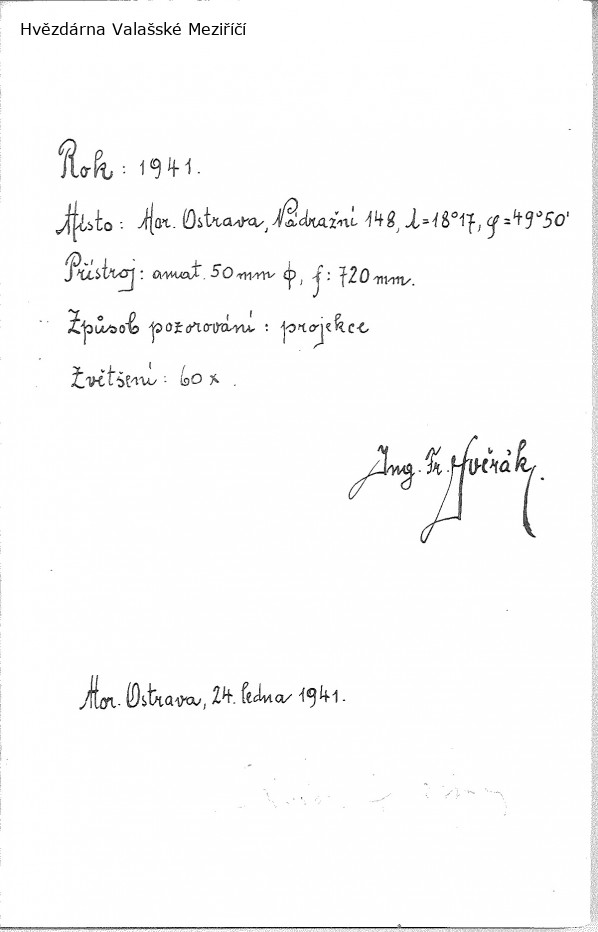 Hvězdárna Valašské Meziříčí
Rok: 1941.
Místo: Mor. Ostrava, Nádražní 148, λ=18°17, φ=49°50'
Přístroj: amat. 50 mm ϕ, f: 720 mm.
Způsob pozorování: projekce
Zvětšení: 60 x.
Ing. Fr.
Mor. Ostrava, 24. ledna 1941.